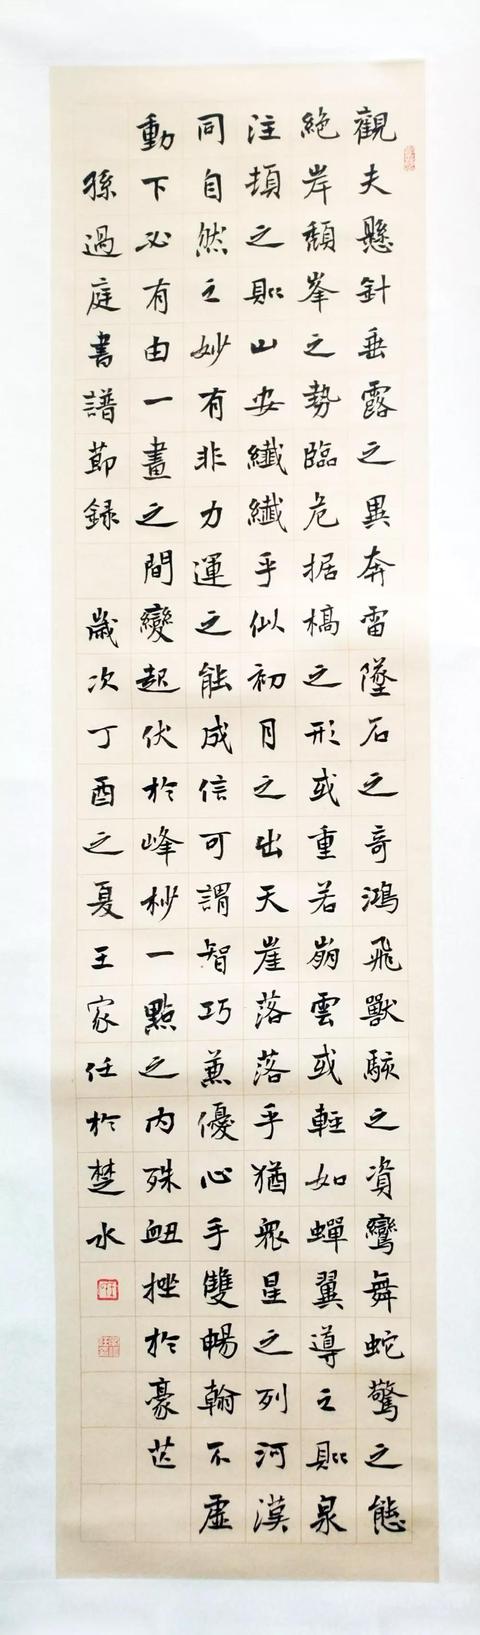 觀夫懸針垂露之異奔雷墜石之奇鴻飛獸駭之資鸞舞蛇驚之態
絶岸頹峯之勢臨危据槁之形或重若崩雲或輕如蟬翼導之則泉
注頓之則山安纖纖乎似初月之出天崖落落乎猶衆星之列河漢
同自然之妙有非力運之能成信可謂智巧兼優心手雙暢翰不虛
動下必有由一畫之間變起伏於峰杪一點之内殊衄挫於豪芒
孫過庭書譜節録 歲次丁酉之夏王家任於楚水